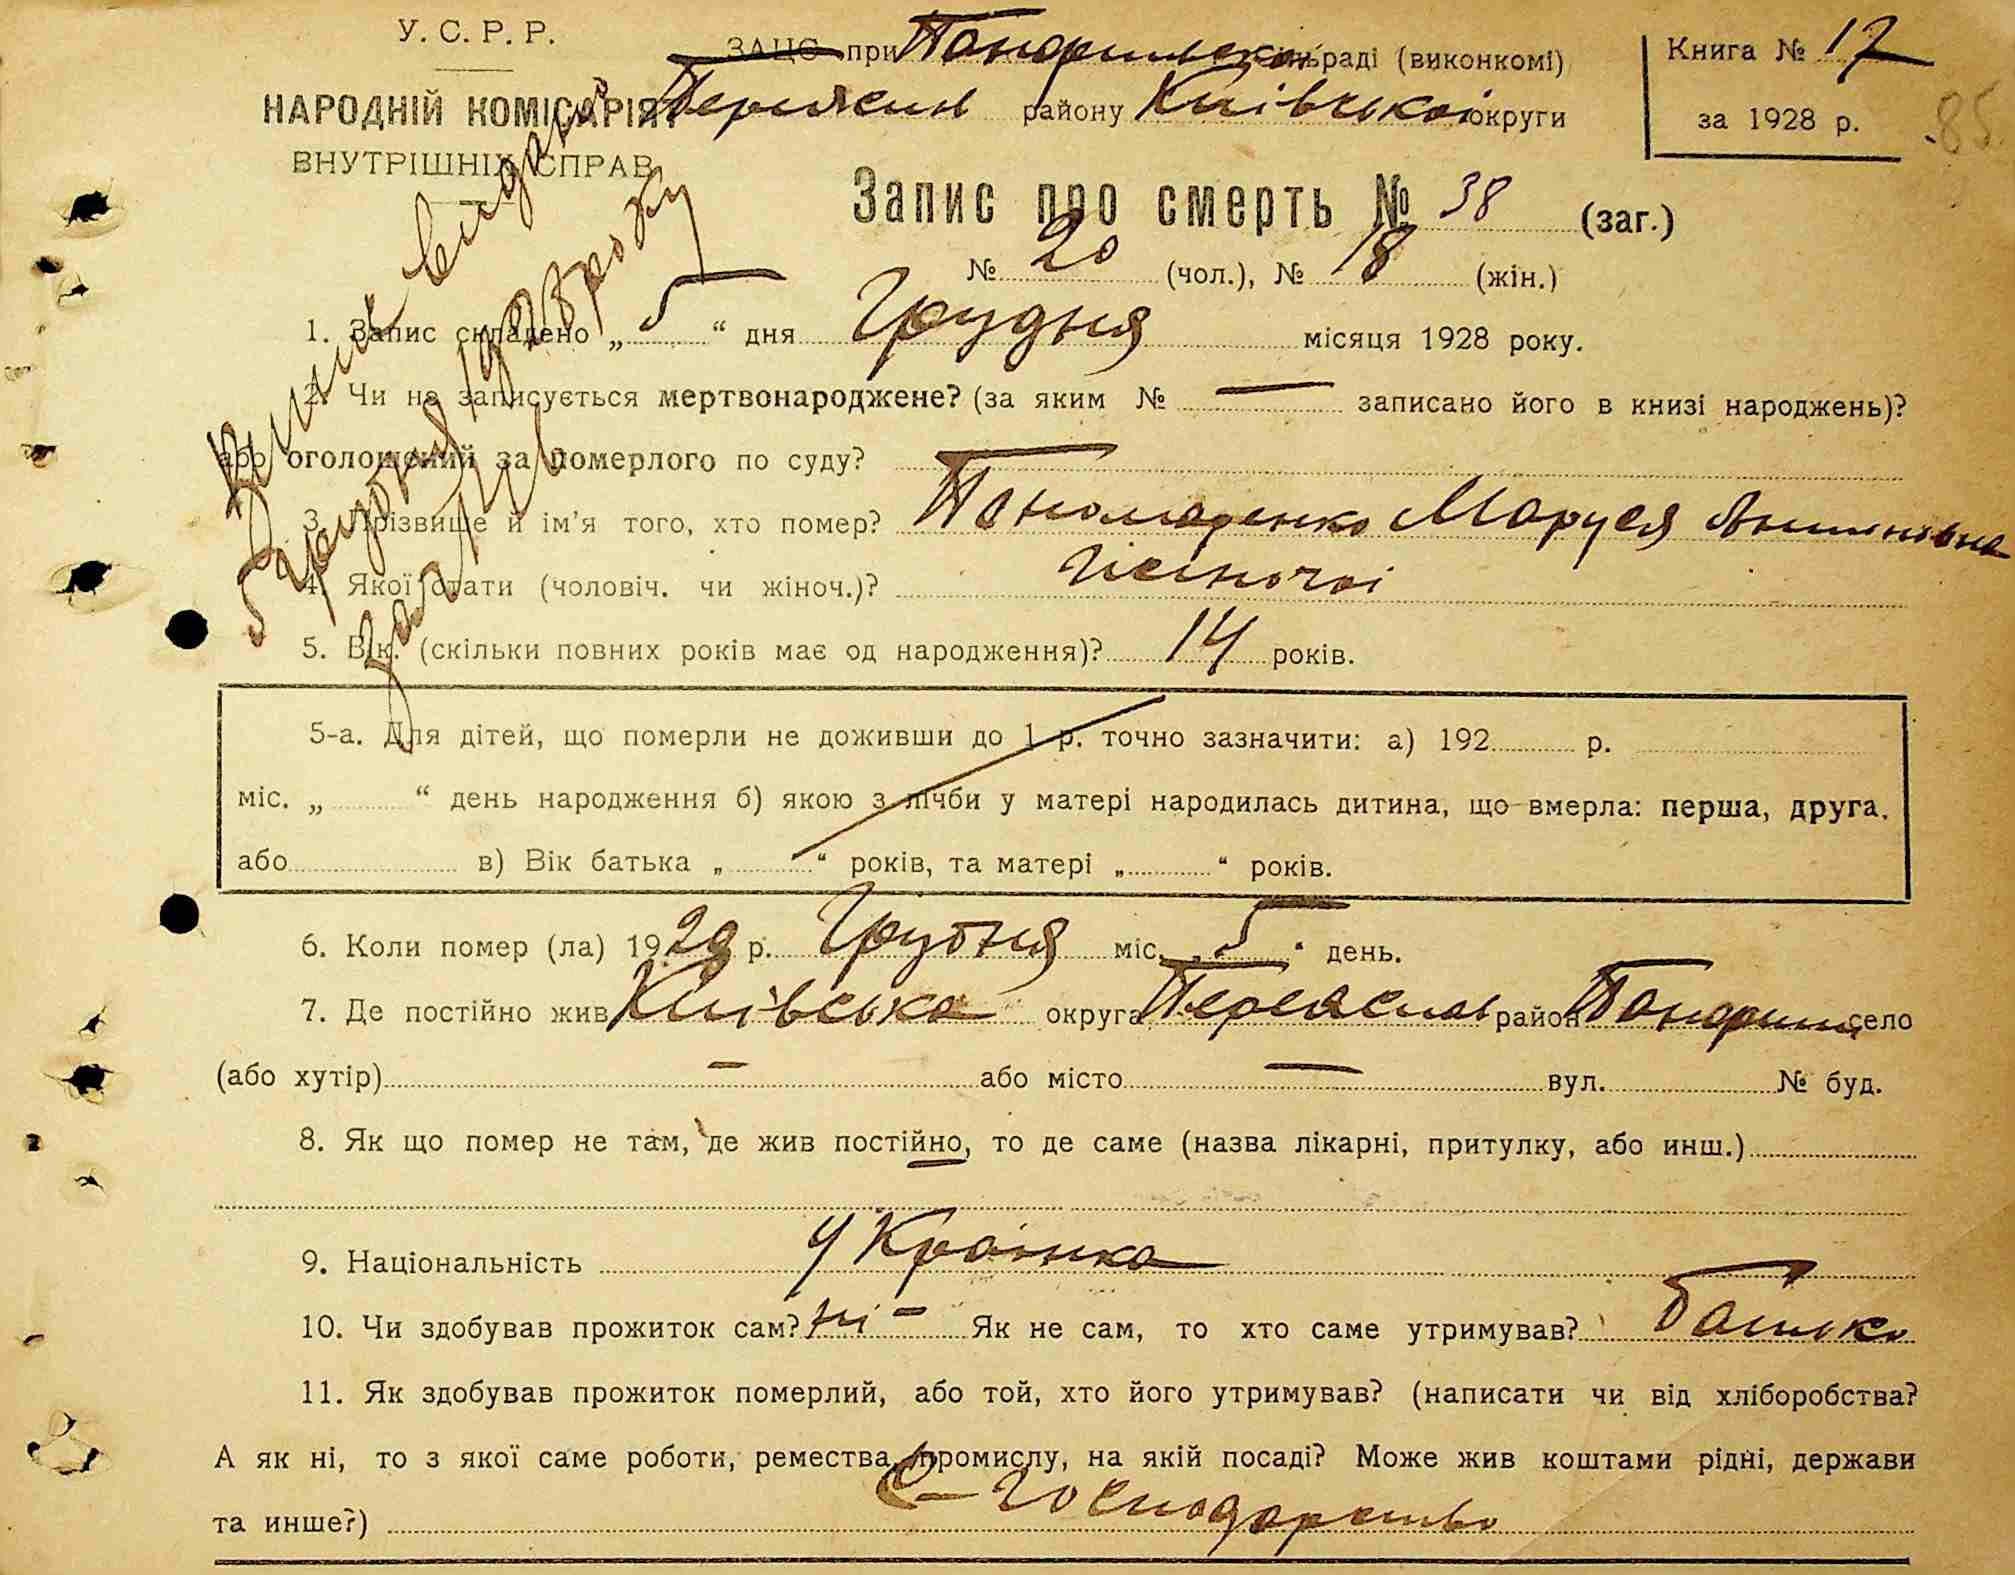 У. С. Р. Р.
НАРОДНІЙ КОМІСАРІЯТ
ВНУТРІШНІХ СПРАВ
ЗАЦС при Панфильскій сільраді (виконкомі)
Переяслав району Київської округи
Книга № 17
за 1928 р.
85
Запис про смерть № 38 (заг.)
№ 20 (чол.), № 18 (жін.)
видано
5 Грудня 1928 року
за №
1. Запис складено „ 5 “ дня Грудня місяця 1928 року.
2. Чи не записується мертвонароджене? (за яким № — записано його в книзі народжень)?
або оголошений за померлого по суду?
3. Прізвище й ім’я того, хто помер? Пономаренко Маруся
4. Якої стати (чоловіч. чи жіноч.)? Жіночої
5. Вік. (скільки повних років має од народження)? 14 років.
5-а. Для дітей, що померли не доживши до 1 р. точно зазначити: а) 192 р.
міс. „ “ день народження б) якою з лічби у матері народилась дитина, що вмерла: перша, друга.
або в) Вік батька „ “ років, та матері „ “ років.
6. Коли помер (ла) 1928 р. Грудня міс. „ 5 “ день.
7. Де постійно жив Київська округа Переяслав район Панфили село
(або хутір) — або місто — вул. № буд.
8. Як що помер не там, де жив постійно, то де саме (назва лікарні, притулку, або инш.)
9. Національність Українка
10. Чи здобував прожиток сам? ні – Як не сам, то хто саме утримував? Батько
11. Як здобував прожиток померлий, або той, хто його утримував? (написати чи від хліборобства?
А як ні, то з якої саме роботи, ремества, промислу, на якій посаді? Може жив коштами рідні, держави
та инше?) С–Господарство